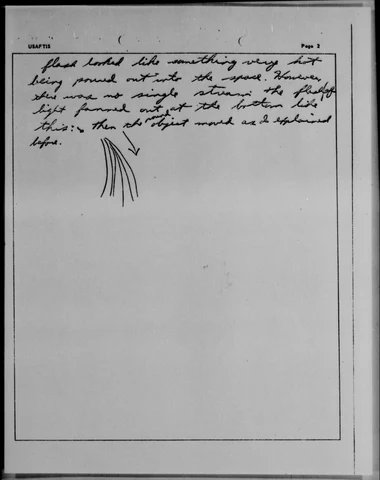 USAFTIS Page 2
flash looked like something very hot
being poured out into the space. However,
there was no single stream the flash of
light fanned out at the bottom like
this: then the object moved as I explained
before.